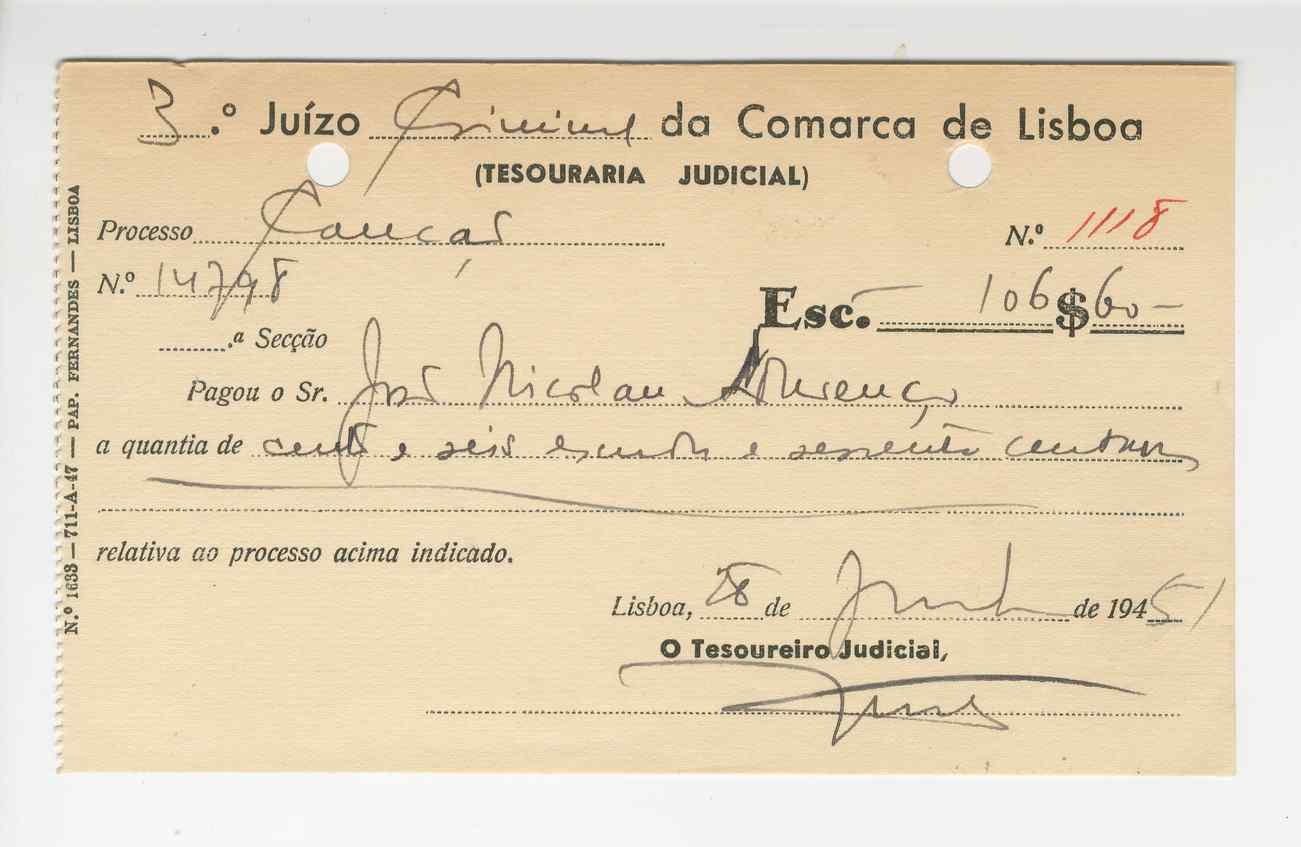 3.º Juízo Criminal da Comarca de Lisboa
(TESOURARIA JUDICIAL)
Processo Caução
N.º 1118
N.º 14798
Esc. 106$60
.ª Secção
Pagou o Sr. José Nicolau Lourenço
a quantia de cento e seis escudos e sessenta centavos
relativa ao processo acima indicado.
Lisboa, 28 de Junho de 19451
O Tesoureiro Judicial,
N.º 1633 — 711-A-47 — PAP. FERNANDES — LISBOA